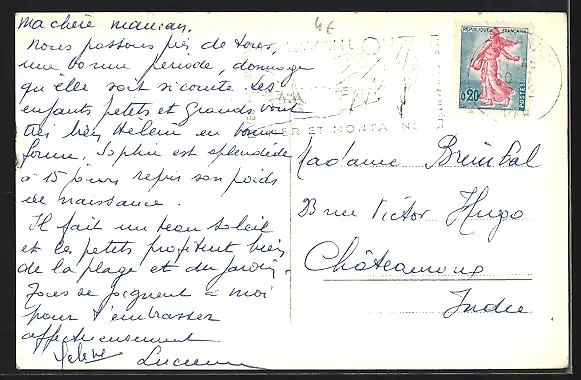 ma chère maman.
4€
Nous passons près de tous,
une bonne période, dommage
qu'elle soit si courte. Les
enfants petits et grands vont
très bien Helene en bonne
forme, Sophie est splendide
à 15 jours repris son poids
de naissance.
Il fait un beau soleil
et les petits profitent bien
de la plage et du jardin.
se joignent à moi
pour t'embrasser
affectueusement
Lucienne
REPUBLIQUE FRANÇAISE
0,20
POSTES
MER ET MONTAGNE
Madame
3 rue Victor Hugo
Châteauroux
Indre